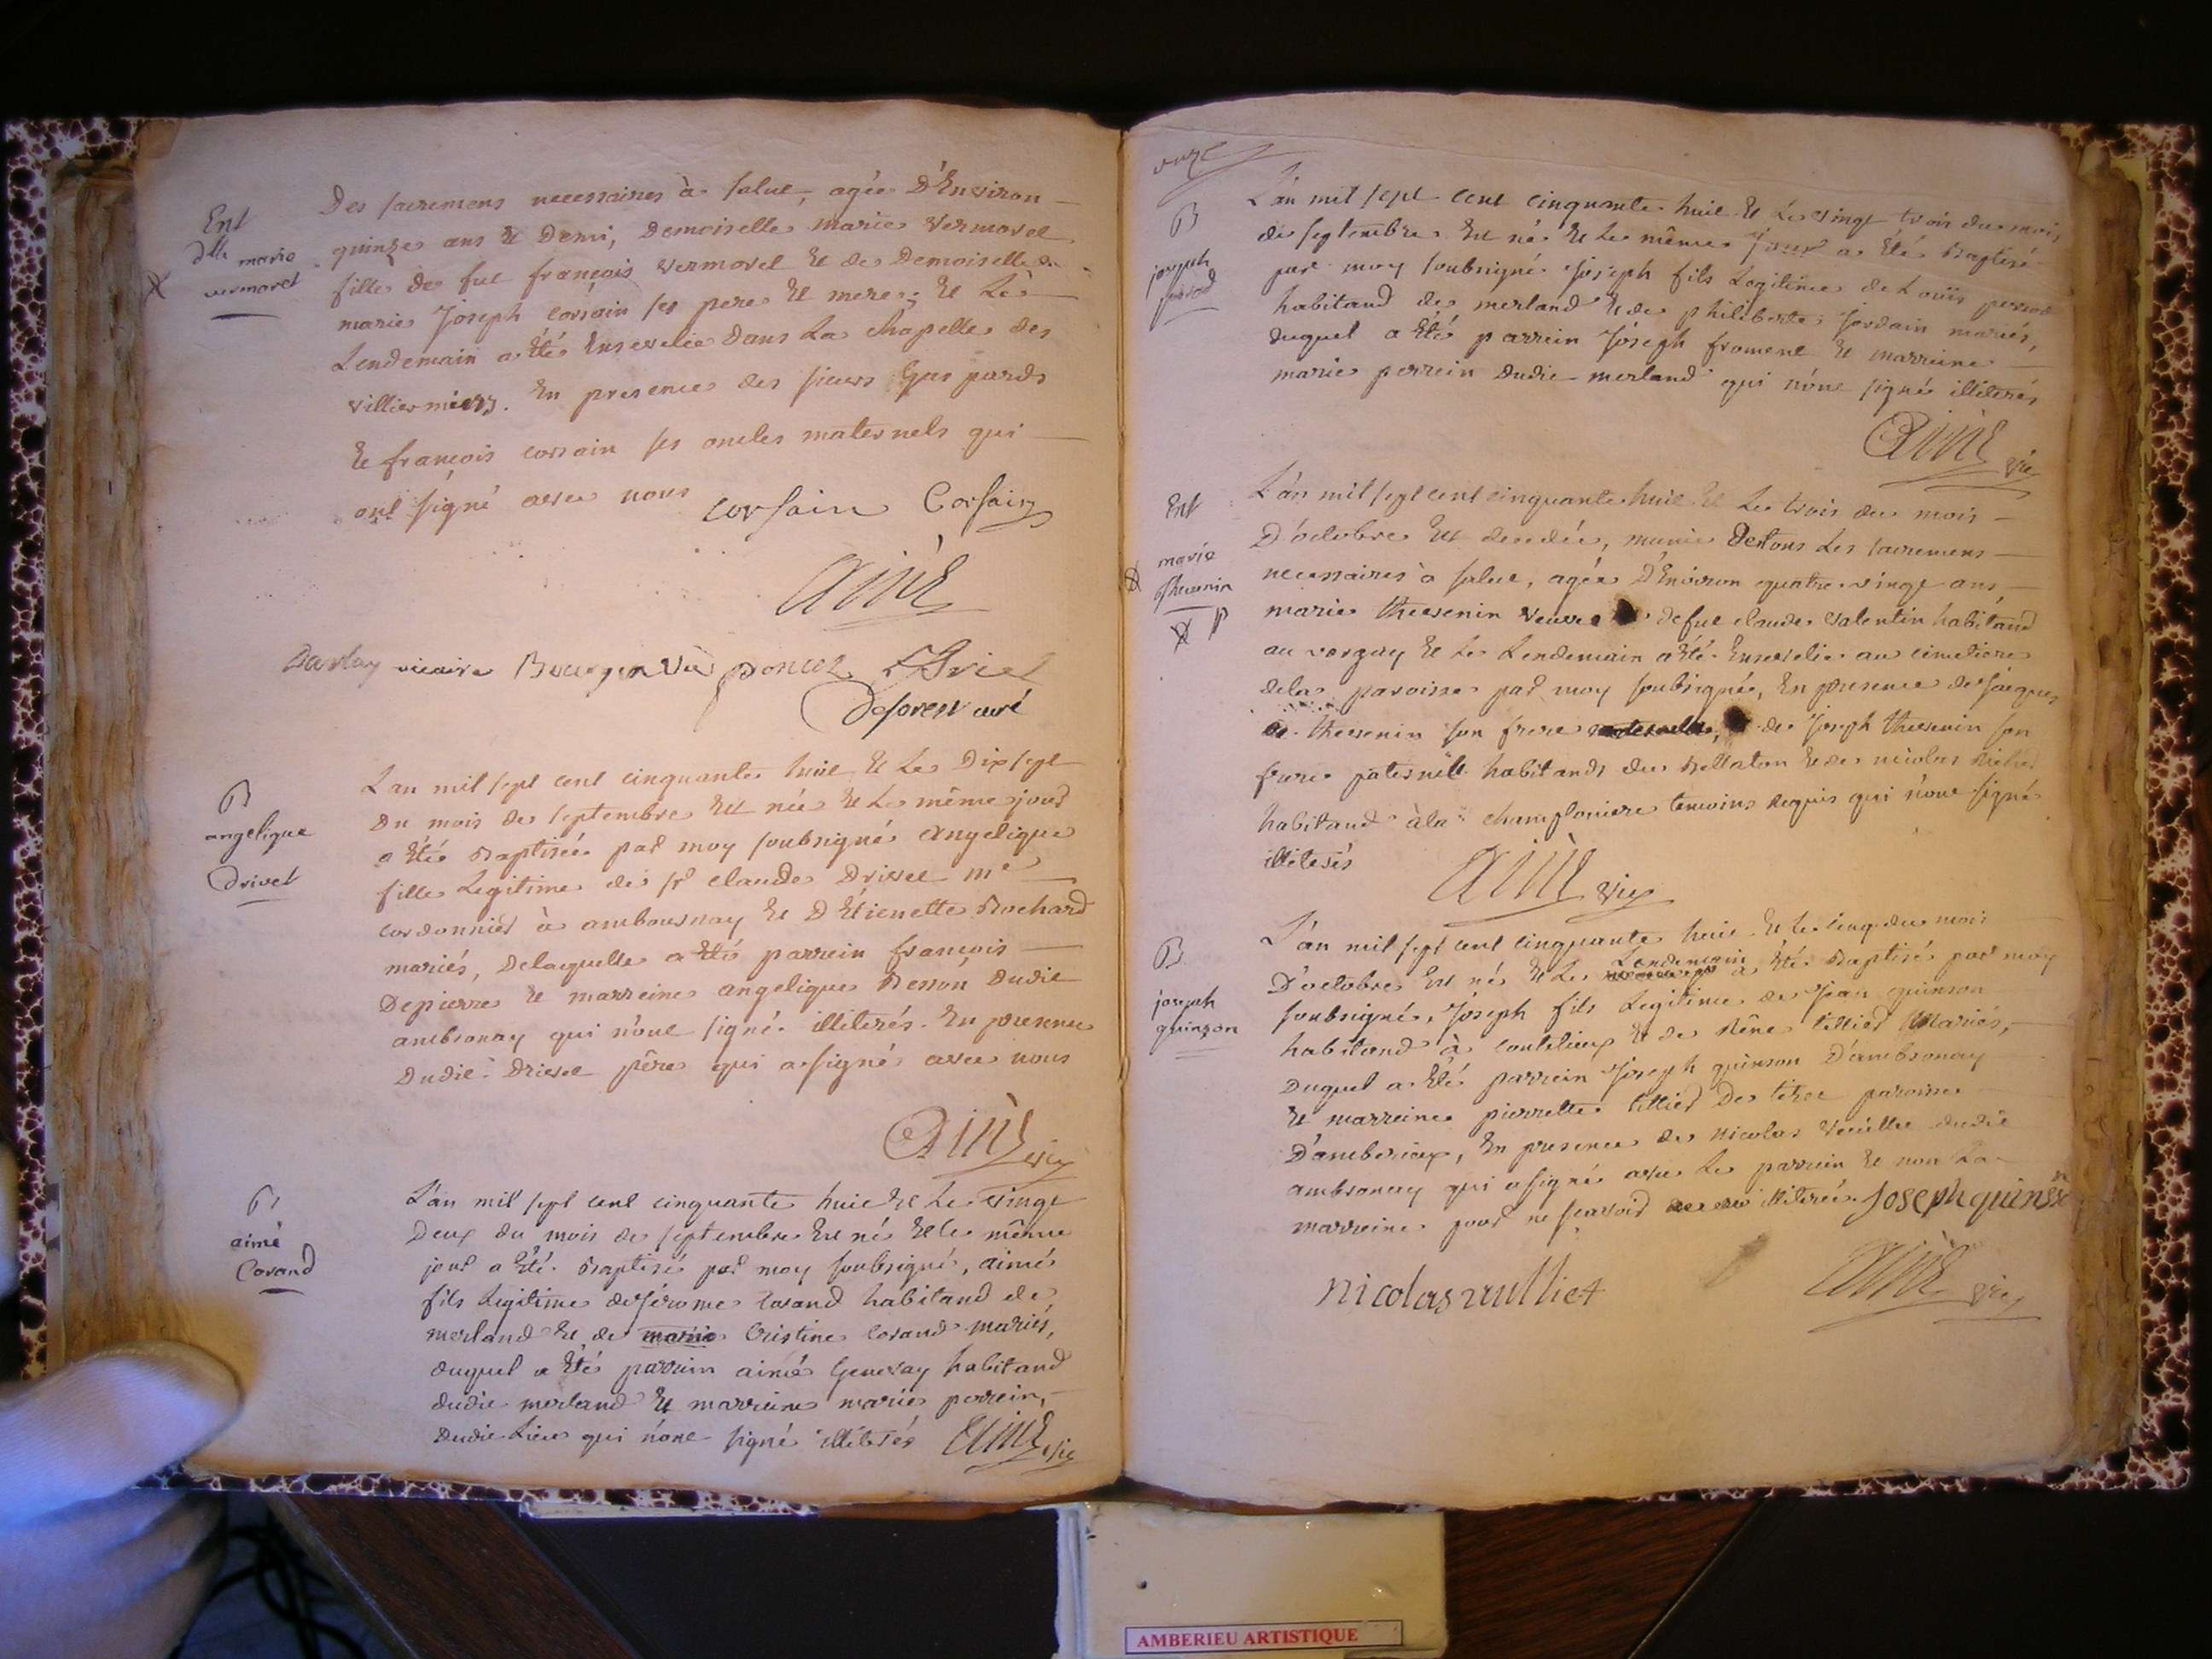 Ent
dlle marie
vermorel
Des sacremens necessaires à salut, agée D'Environ
quinze ans et Demi, Demoiselle marie Vermorel
fille de fut françois Vermorel Et de Demoiselle
marie Joseph corsain ses pere Et mere; Et Le
Lendemain a été Ensevelie Dans La chapelle des
En presence des sieurs Gaspards
Et françois corsain ses oncles maternels qui
ont signé avec nous corsain Corsain
Aimé
vicaire poncet
curé
B
angelique
Drivet
L'an mil sept cent cinquante huit Et Le Dix sept
Du mois de septembre Est née Et Le même jour
a Eté Baptisée par moy soubsigné Angelique
fille Legitime de sr claude Drivet me
cordonnier à ambournay Et D'Etienette Rochard
mariés, Delaquelle a été parrein françois
Depierre Et marreine angelique Besson Dudit
ambronay qui n'ont signé illiterés. En presence
Dudit Drivet père qui a signé avec nous
Aimé vic
B
aimé
Corand
L'an mil sept cent cinquante huit Et Le vingt
Deux du mois de septembre Est né Et le même
jour a Eté Baptisé par moy soubsigné, aimé
fils Legitime de Jérome Corand habitand de
merland Et de marie Cristine Corand mariés,
duquel a Eté parrein aimé Genevay habitand
dudit merland Et marreine marie perrein,
Dudit Lieu qui n'ont signé illiterés Aimé vic
onze
B
joseph
perrod
L'an mil sept cent cinquante huit Et Le vingt trois du mois
de septembre Est né Et Le même Jour a Eté Baptisé
par moy soubsigné Joseph fils Legitime de Louis perrod
habitand de merland Et de philiberte Jordain mariés,
duquel a Eté parrein Joseph froment Et marreine
marie perrein Dudit merland qui n'ont signé illiterés
Aimé vic
Ent
marie
Thevenin
L'an mil sept cent cinquante huit Et Le trois du mois
D'octobre Est decedée, munie De tous Les sacremens
necessaires à salut, agée D'Environ quatre vingt ans,
marie thevenin veuve de fut claude Valentin habitand
au vorgay Et Le Lendemain a Eté Ensevelie au cimetiere
de la paroisse par moy soubsigné, En presence de Jacques
thevenin son frere de Joseph thevenin son
frere paternel habitands du Bellaton Et de nicolas
habitand à la champloniere temoins requis qui n'ont signé
illiterés
Aimé vic
B
joseph
quinson
L'an mil sept cent cinquante huit Et Le cinq du mois
Lendemain
D'octobre Est né Et Le a Eté Baptisé par moy
soubsigné, Joseph fils Legitime de Jean quinson
habitand à coutelieux Et de Rène tillier Mariés,
Duquel a Eté parrein Joseph quinson D'ambronay
Et marreine pierrette tillier De tiret paroisse
D'amberieux, En presence de Nicolas dudit
ambronay qui a signé avec Le parrein Et non La
marreine pour ne sçavoir illiterée. Joseph quinson
nicolas vulliet
Aimé vic
AMBERIEU ARTISTIQUE